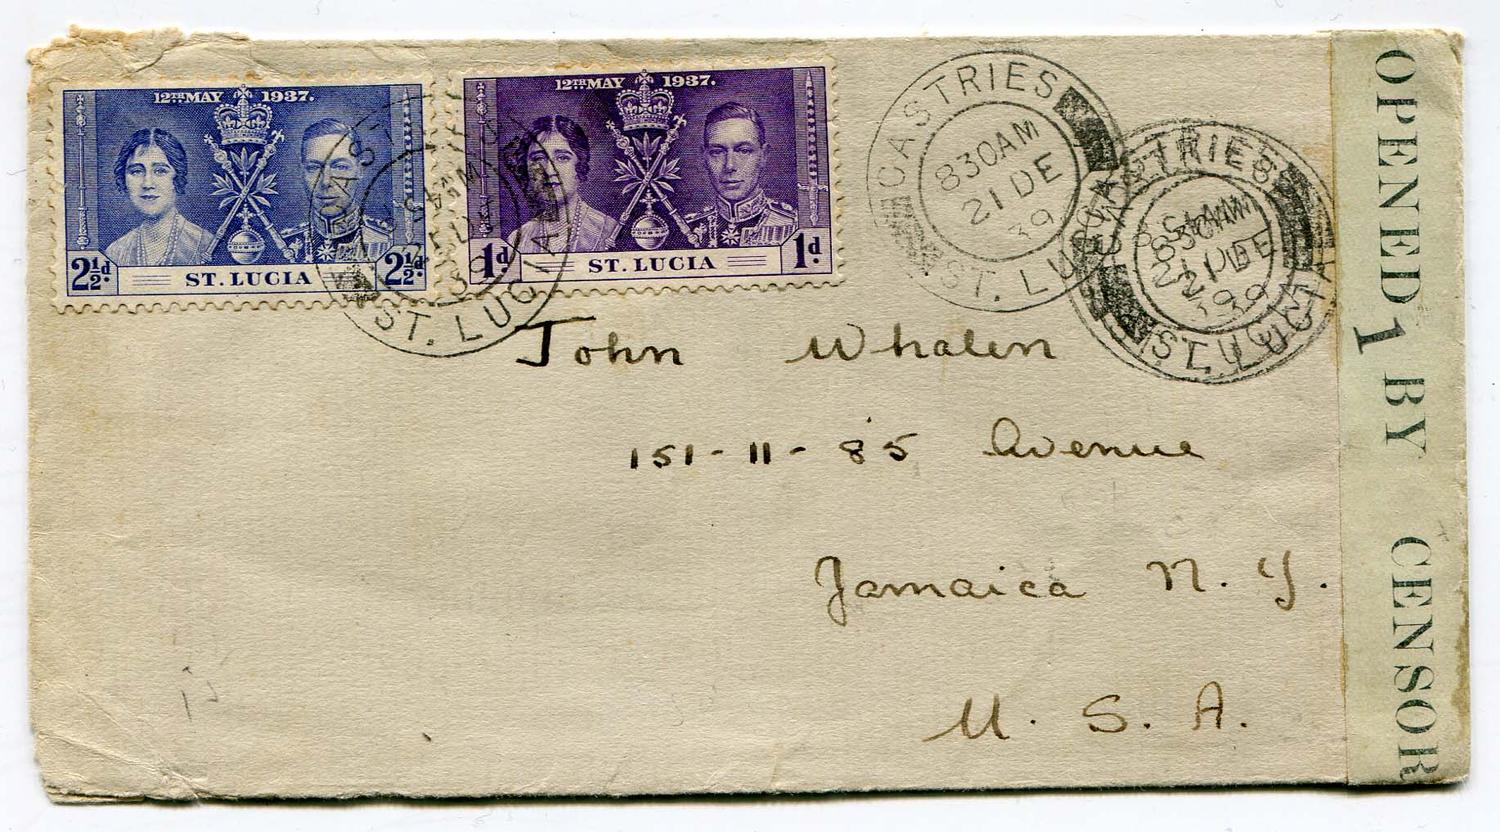 12TH MAY 1937.
2½d ST. LUCIA 2½d
12TH MAY 1937.
1d ST. LUCIA 1d
CASTRIES
ST. LUCIA
CASTRIES
830AM
21 DE
39
ST. LUCIA
CASTRIES
21 DE
39
ST. LUCIA
John Whalen
151-11-85 Avenue
Jamaica N.Y.
U.S.A.
OPENED BY CENSOR
1